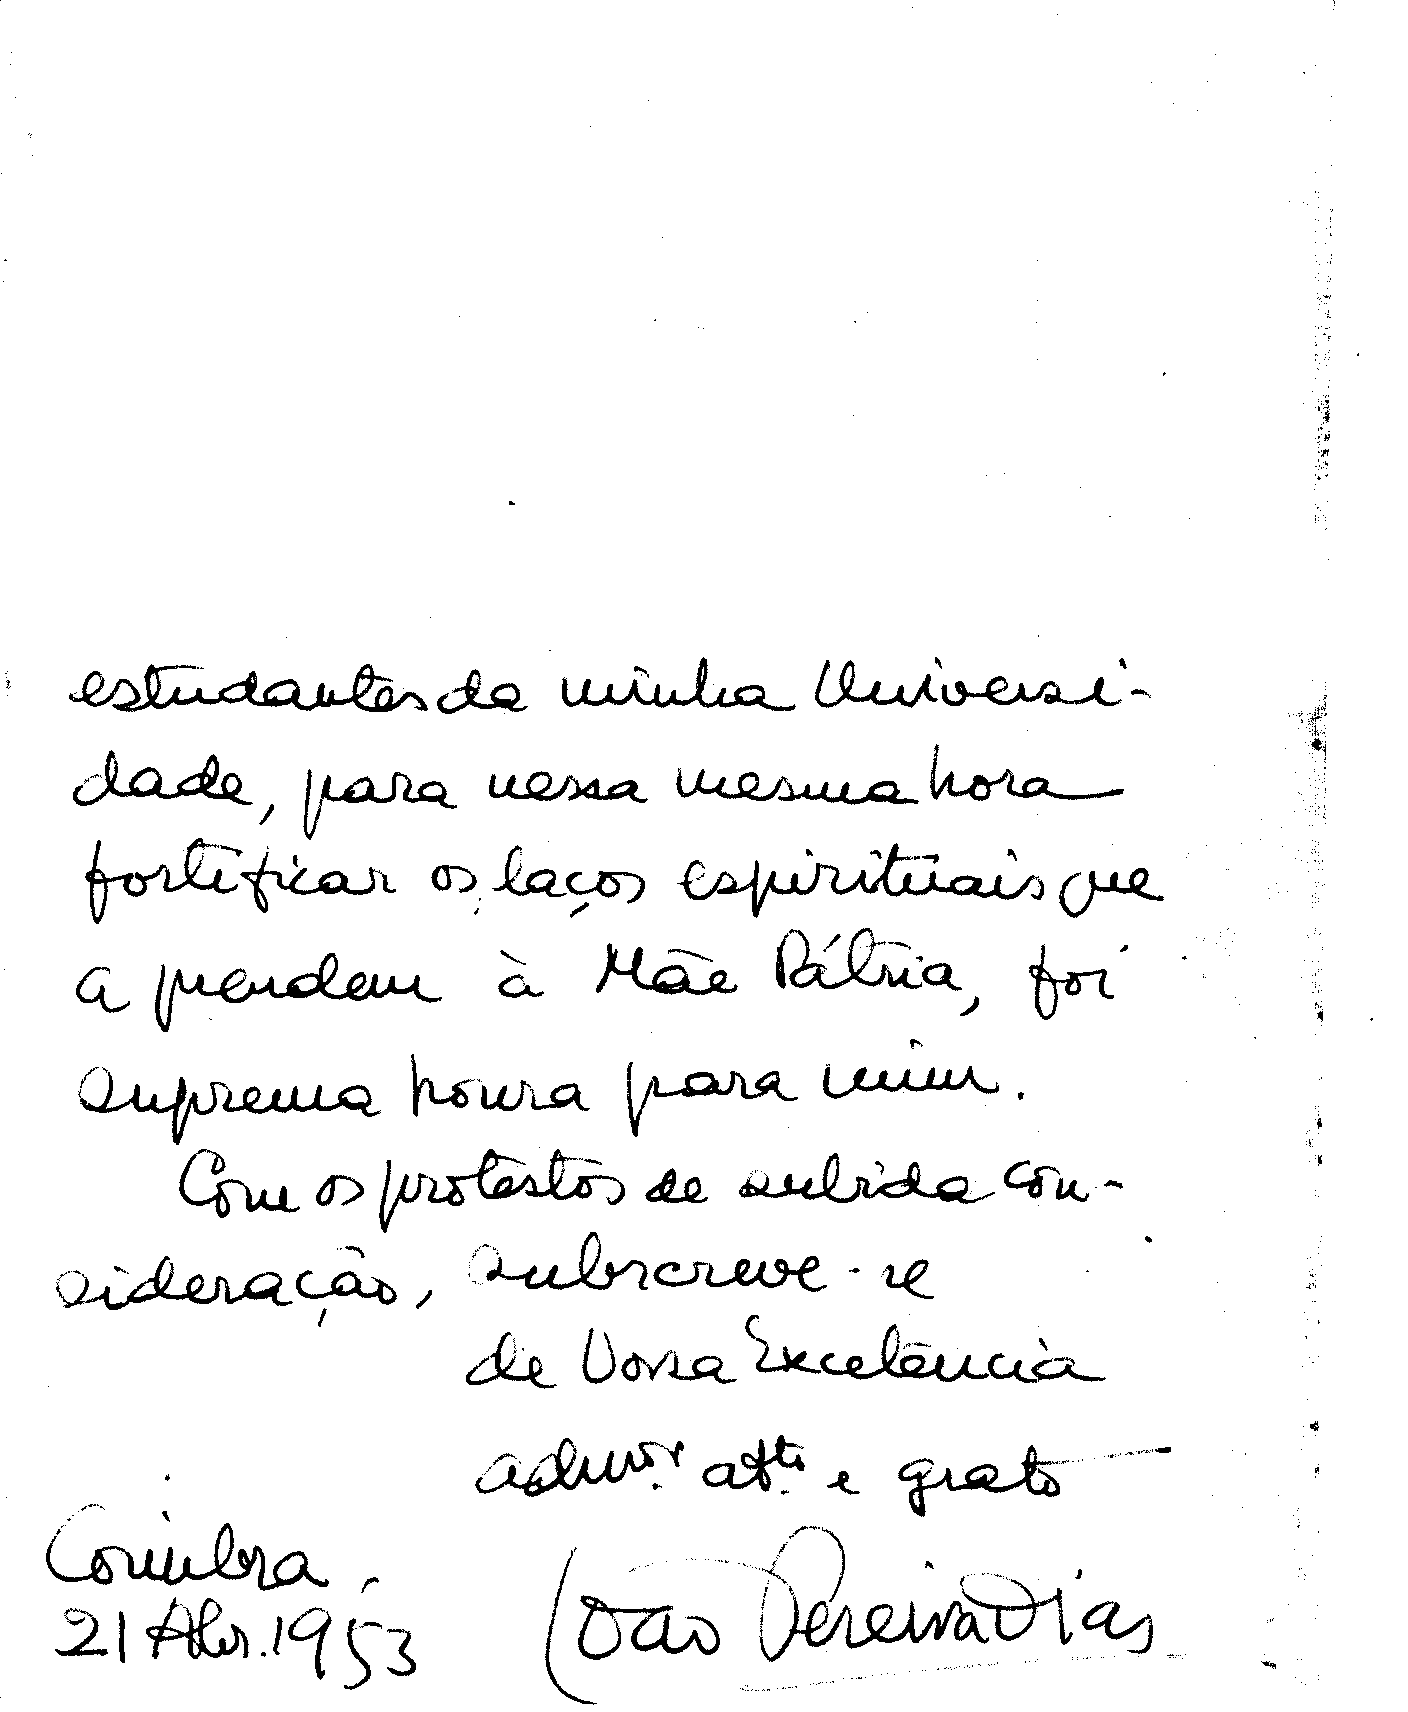 estudantes da minha Universi-
dade, para nessa mesma hora
fortificar os laços espirituais que
a prendem à Mãe Pátria, foi
suprema honra para mim.
Com os protestos de subida con-
sideração, subscreve-se
de Vossa Excelência
admor. atto. e grato
Coimbra,
21 Abr. 1953 João Pereira Dias